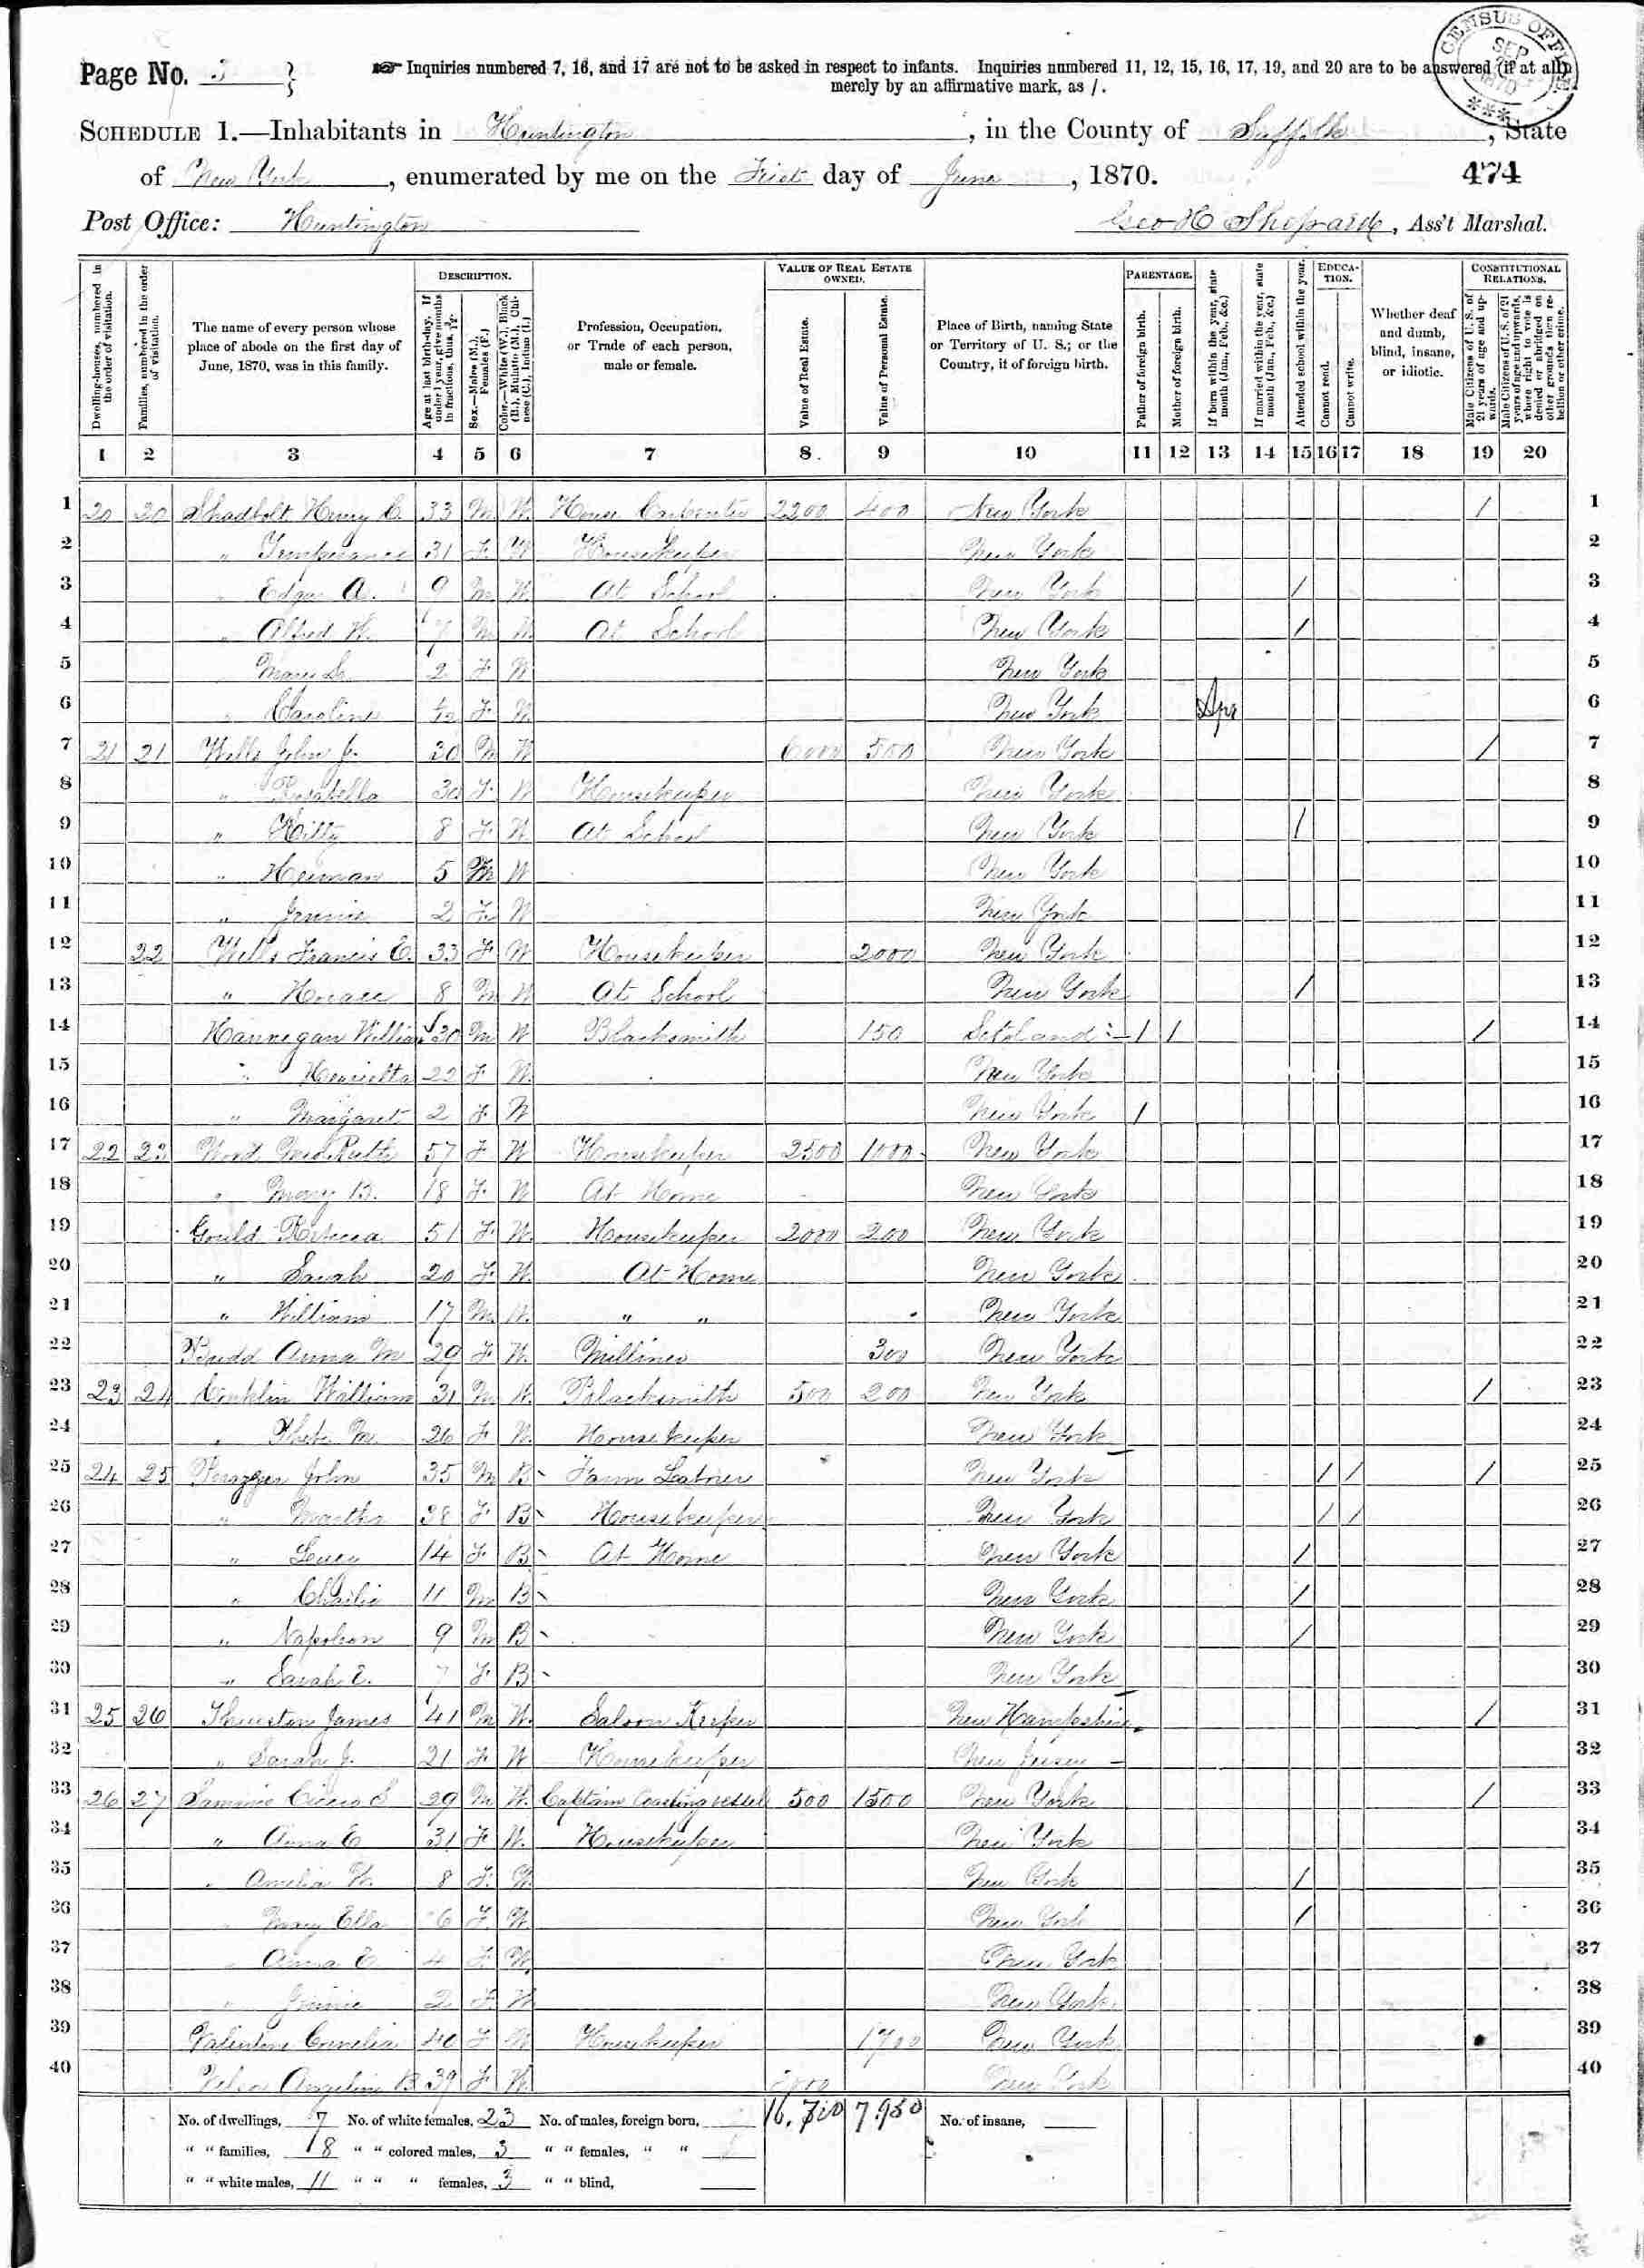 Page No. 3
☞ Inquiries numbered 7, 16, and 17 are not to be asked in respect to infants. Inquiries numbered 11, 12, 15, 16, 17, 19, and 20 are to be answered (if at all)
merely by an affirmative mark, as /.
CENSUS OFFICE SEP 1870
SCHEDULE 1.—Inhabitants in Huntington, in the County of Suffolk, State
of New York, enumerated by me on the First day of June, 1870.
474
Post Office: Huntington
Geo H Shepard, Ass't Marshal.
Dwelling-houses, numbered in the order of visitation.
Families, numbered in the order of visitation.
The name of every person whose place of abode on the first day of June, 1870, was in this family.
DESCRIPTION.
Age at last birth-day. If under 1 year, give months in fractions, thus, 3/12.
Sex.—Males (M.), Females (F.)
Color.—White (W.), Black (B.), Mulatto (M.), Chinese (C.), Indian (I.)
Profession, Occupation, or Trade of each person, male or female.
VALUE OF REAL ESTATE OWNED.
Value of Real Estate.
Value of Personal Estate.
Place of Birth, naming State or Territory of U. S.; or the Country, if of foreign birth.
PARENTAGE.
Father of foreign birth.
Mother of foreign birth.
If born within the year, state month (Jan., Feb., &c.)
If married within the year, state month (Jan., Feb., &c.)
Attended school within the year.
EDUCATION.
Cannot read.
Cannot write.
Whether deaf and dumb, blind, insane, or idiotic.
CONSTITUTIONAL RELATIONS.
Male Citizens of U. S. of 21 years of age and upwards.
Male Citizens of U. S. of 21 years of age and upwards, whose right to vote is denied or abridged on other grounds than rebellion or other crime.
1 2 3 4 5 6 7 8 9 10 11 12 13 14 15 16 17 18 19 20
1 20 20 Shadbolt Henry C. 33 M W. House Carpenter 2200 400 New York / 1
2 " Temperance 31 F. W Housekeeper New York 2
3 " Edgar A. 9 M W. At School New York / 3
4 " Alfred W. 7 M W. At School New York / 4
5 2 F W New York 5
6 " Caroline 1/12 F. W New York Apr 6
7 21 21 Wells John J. 30 M W 6000 500 New York / 7
8 " Rosabella 30 F. W Housekeeper New York 8
9 " Kitty 8 F. W At School New York / 9
10 " Heman 5 M W New York 10
11 " Jennie 2 F. W New York 11
12 22 Wells Francis E. 33 F W Housekeeper 2000 New York 12
13 " Horace 8 M W At School New York / 13
14 Hannegan William 30 M W Blacksmith 150 Scotland / / / 14
15 " Henrietta 22 F W. New York 15
16 " Margaret 2 F W New York / 16
17 22 23 Wood Ruth 57 F W Housekeeper 2500 1000 New York 17
18 " Mary B. 18 F. W At Home New York 18
19 Gould Rebecca 51 F W. Housekeeper 2000 200 New York 19
20 " Sarah 20 F W. At Home New York 20
21 " William 17 M W. " " New York 21
22 Budd Anna M 29 F W. Milliner 300 New York 22
23 23 24 Conklin William 31 M W. Blacksmith 500 200 New York / 23
24 " Phebe M 26 F W. Housekeeper New York 24
25 24 25 John 35 M B Farm Laborer New York / / / 25
26 " Martha 38 F B Housekeeper New York / / 26
27 " Lucy 14 F B At Home New York / 27
28 " Charlie 11 M B New York / 28
29 " Napoleon 9 M B New York / 29
30 " Sarah E. 7 F B New York 30
31 25 26 Thurston James 41 M W. Saloon Keeper New Hampshire / 31
32 " Sarah J. 21 F W Housekeeper New Jersey 32
33 26 27 Sammis Cicero S 29 M W. Captain Coasting vessel 500 1500 New York / 33
34 " Anna E 31 F W. Housekeeper New York 34
35 " Amelia 8 F. W New York / 35
36 " Mary Ella 6 F. W New York / 36
37 " Anna E 4 F W New York 37
38 " Jennie 2 F W New York 38
39 Valentine Cornelia 40 F W Housekeeper 1700 New York 39
40 Angeline B 39 F W. New York 40
No. of dwellings, 7 No. of white females, 23 No. of males, foreign born, 16,710 7,950 No. of insane,
" " families, 8 " " colored males, 3 " " females, " "
" " white males, 11 " " " females, 3 " " blind,